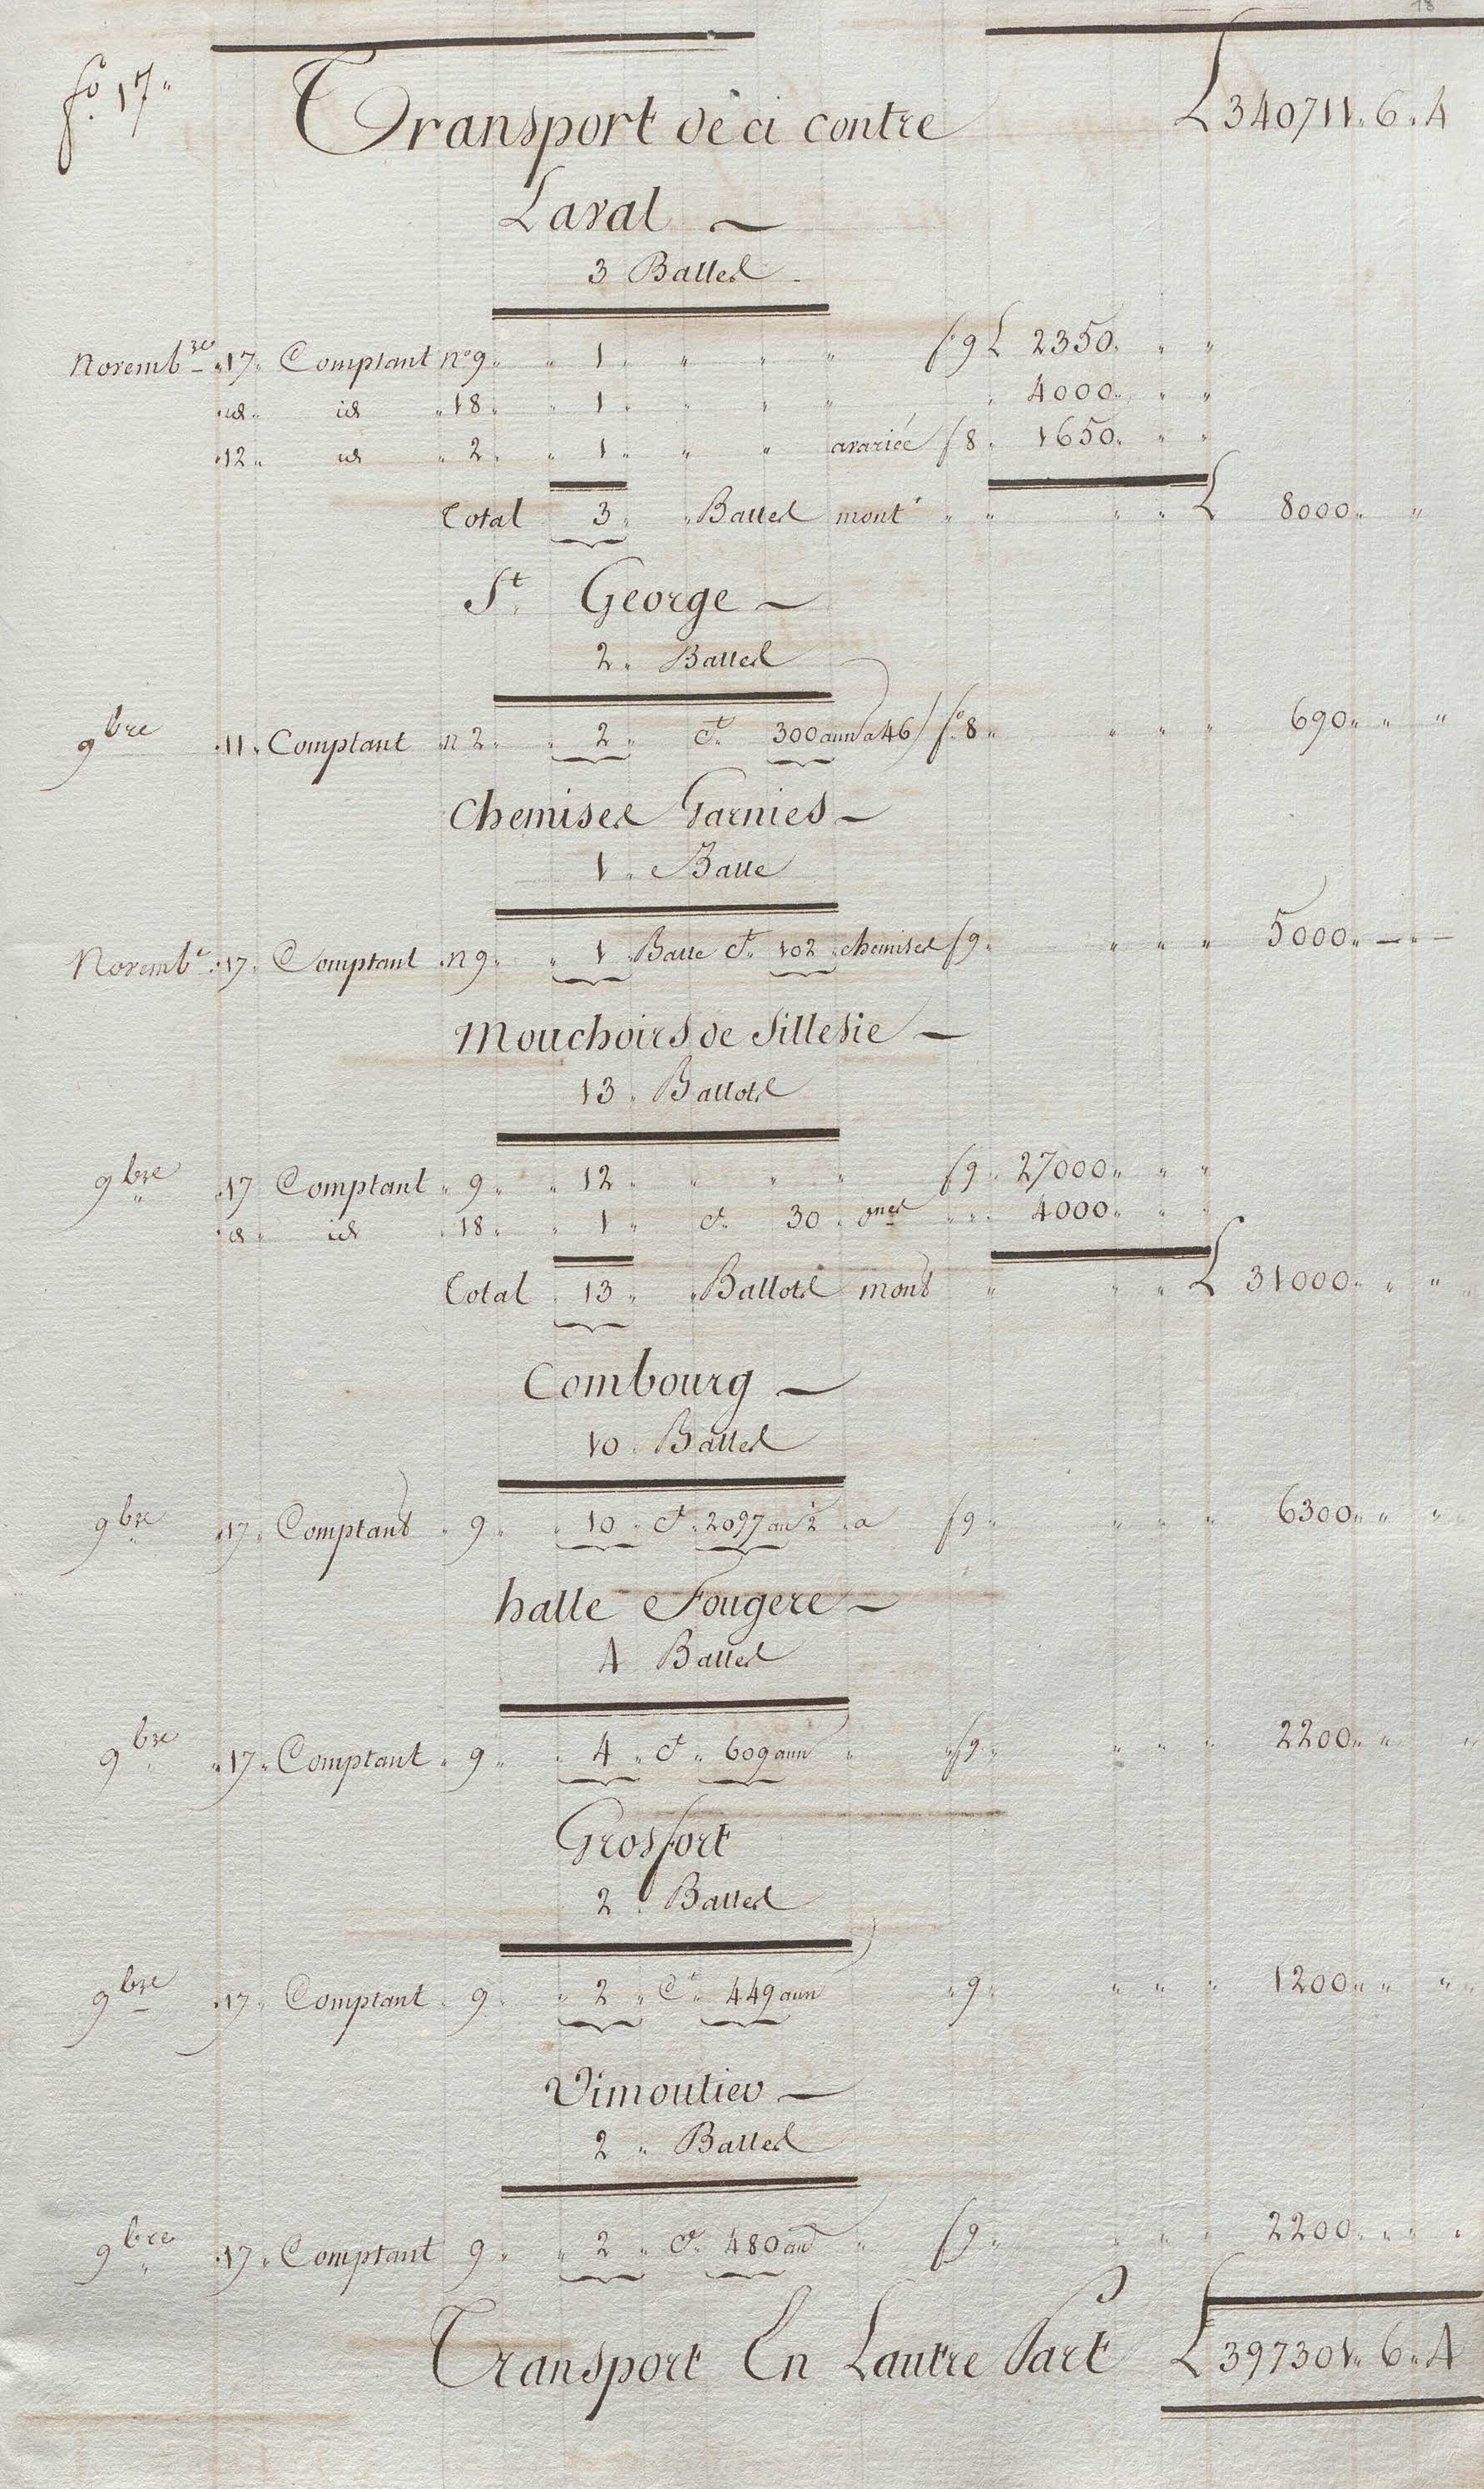 18
fo. 17 "
Transport de ci contre £ 340711 " 6 " 4
Laval
3 Balles
Novembre " 17 " Comptant no 9 " " 1 " " " " fo 9 £ 2350 " " "
" id " id " 18 " " 1 " " " " " 4000 " " "
" 12 " id " 2 " " 1 " " " avariée f 8 " 1650 " " "
Total 3 " " Balles mont " " " " £ 8000 " "
St. George
2 " Balles
9bre " 11 " Comptant n 2 " " 2 " Ct. 300 aun a 46/ fo. 8 " " " " 690 " " "
Chemises Garnies
1 " Balle
Novembe " 17 " Comptant " n 9 " " 1 Balle Ct. 102 " chemises f 9 " " " " 5000 " — " —
Mouchoirs de Sillesie
13 " Ballots
9bre " 17 Comptant " 9 " " 12 " " " " f 9 " 27000 " " "
" id " id " 18 " " 1 " Ct. 30 " dnes " " " 4000 " " "
Total " 13 " " Ballots mont " " " £ 31000 " " "
Combourg
10 " Balles
9bre " 17 " Comptant " 9 " " 10 " Ct. 2097 au ½ " a f 9 " " " " 6300 " " "
halle Fougere
4 Balles
9bre " 17 " Comptant " 9 " " 4 " Ct " 609 aun " " f 9 " " " " 2200 " " "
Grosfort
2 " Balles
9bre " 17 " Comptant " 9 " " 2 " Ct " 449 aun " 9 " " " " 1200 " " "
Vimoutier
2 " Balles
9bre " 17 " Comptant 9 " " 2 " Ct. 480 au " f 9 " " " " 2200 " " "
Transport En Lautre Part £ 397301 " 6 " 4